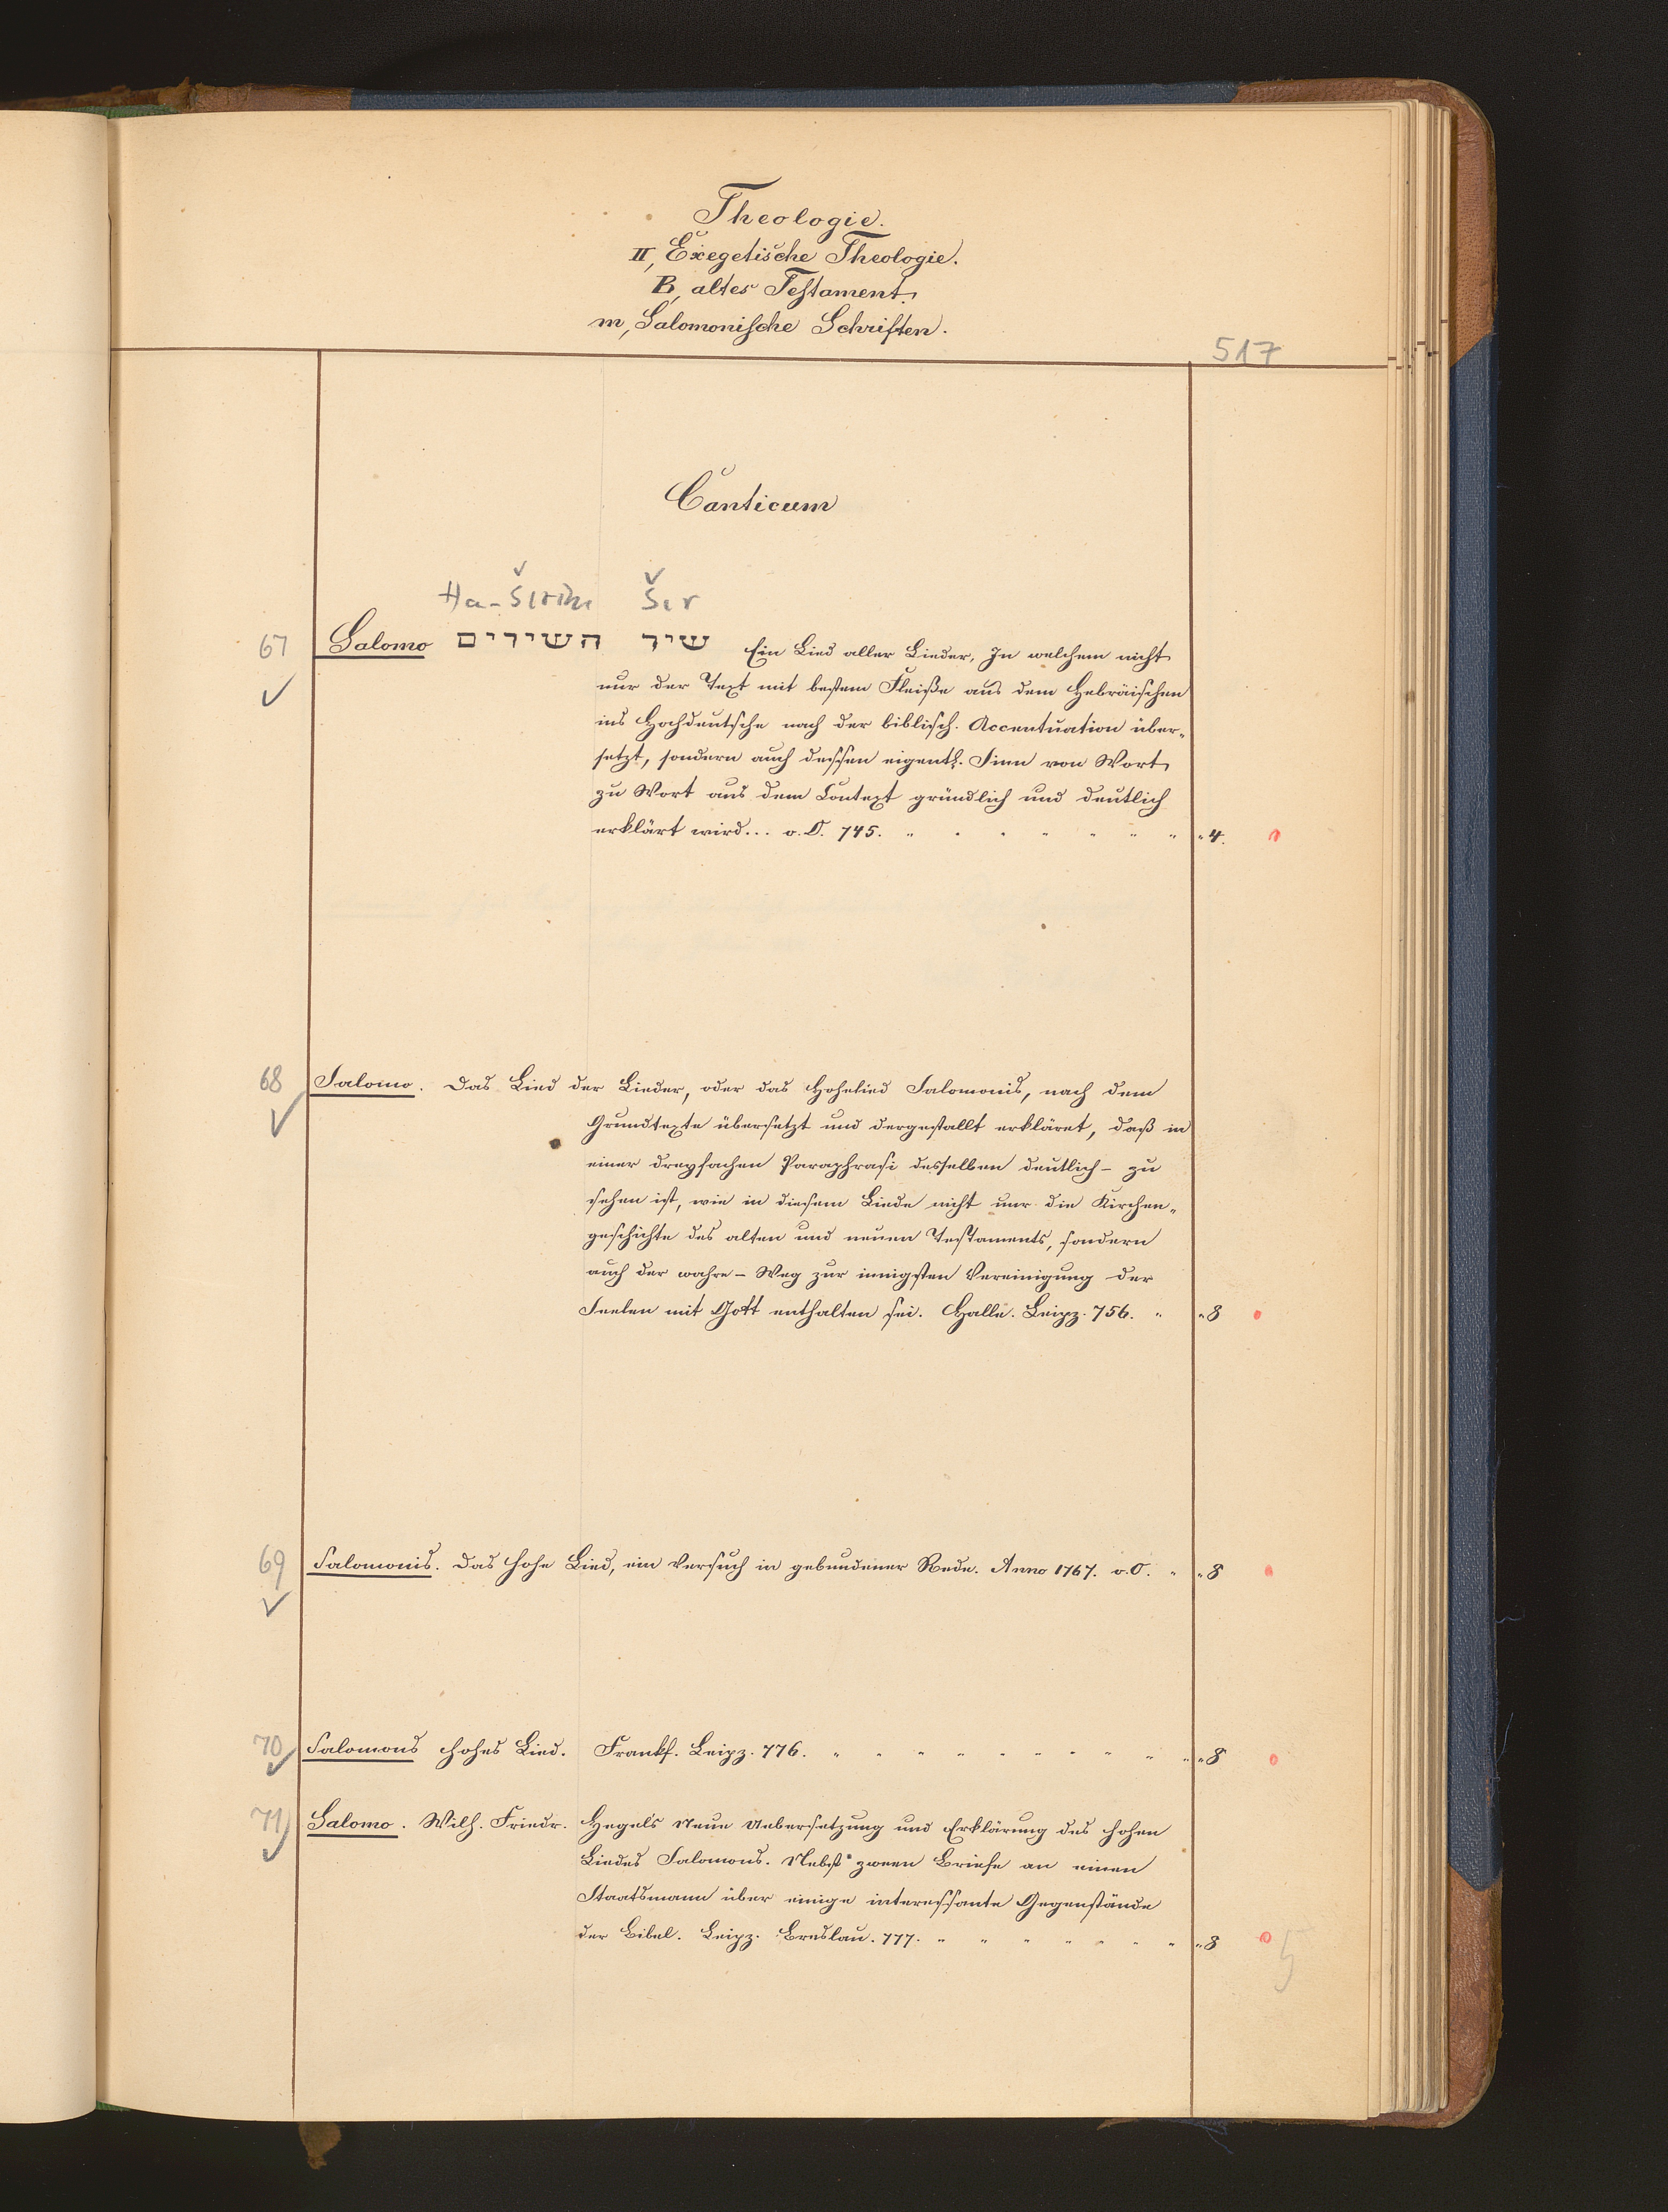 Theologie.
II, Exegetische Theologie.
B, altes Testament.
m, Salomonische Schriften.
517
Canticum
Ha-Širim Šir
67 Salomo שיר השירים Ein Lied aller Lieder, In welchem nicht
nur der Text mit bestem Fleiße aus dem Hebräischen
ins Hochdeutsche nach der biblisch. Accentuation über-
setzt, sondern auch dessen eigentl. Sinn von Wort
zu Wort aus dem Context gründlich und deutlich
erklärt wird... o. O. 745. " " " " " " " " 4.
68 Salomo. Das Lied der Lieder, oder das Hohelied Salomonis, nach dem
Grundtexte übersetzt und dergestallt erkläret, daß in
einer dreyfachen Paraphrasi desselben deutlich – zu
sehen ist, wie in diesem Liede nicht nur die Kirchen-
geschichte des alten und neuen Testaments, sondern
auch der wahre – Weg zur innigsten Vereinigung der
Seelen mit Gott enthalten sei. Halle. Leipz. 756. " " 8
69 Salomonis. Das hohe Lied, ein Versuch in gebundener Rede. Anno 1767. o. O. " " 8
70 Salomons hohes Lied. Frankf. Leipz. 776. " " " " " " " " " " " 8
71 Salomo. Wilh. Friedr. Hegel's Neue Uebersetzung und Erklärung des hohen
Liedes Salomons. Nebst zween Briefe an einen
Staatsmann über einige interessante Gegenstände
der Bibel. Leipz. Breslau. 777. " " " " " " " " 8
5